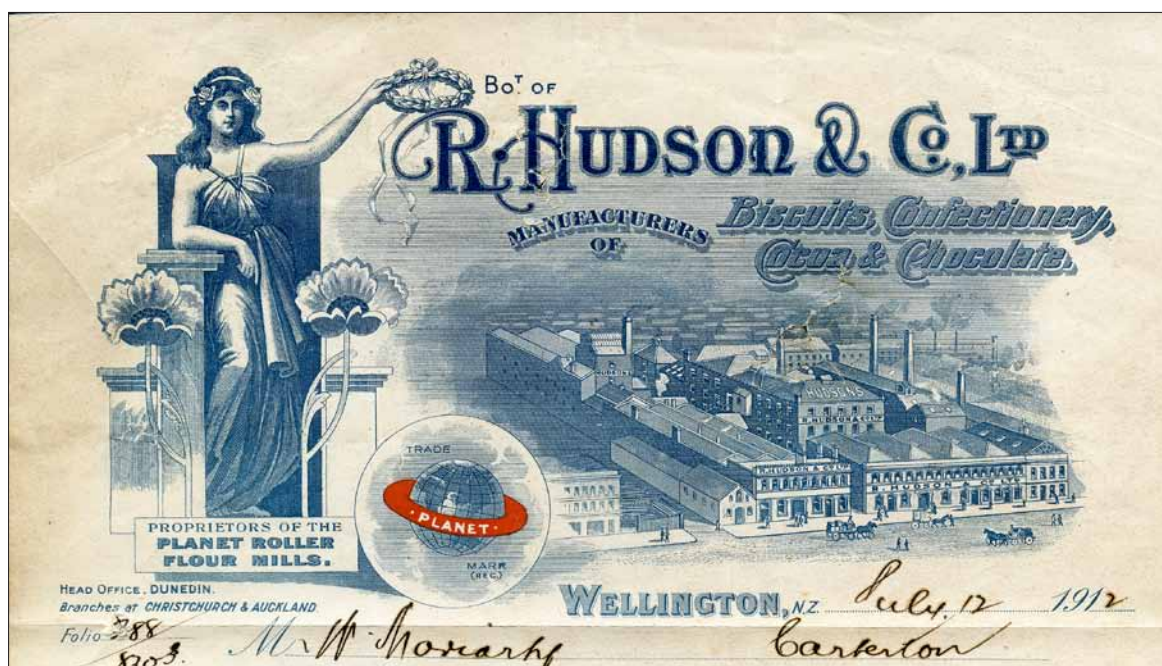 BOT OF
R. HUDSON & CO, LTD
MANUFACTURERS OF
Biscuits, Confectionery,
Cocoa & Chocolate.
HUDSONS
HUDSONS
R. HUDSON & CO LTD
R. HUDSON & CO LTD
R. HUDSON & CO LTD
TRADE
PLANET
MARK
(REG.)
PROPRIETORS OF THE
PLANET ROLLER
FLOUR MILLS.
HEAD OFFICE, DUNEDIN.
Branches at CHRISTCHURCH & AUCKLAND.
WELLINGTON, N.Z. July 12 1912
Folio 88
Mr W. Moriarty
Carterton